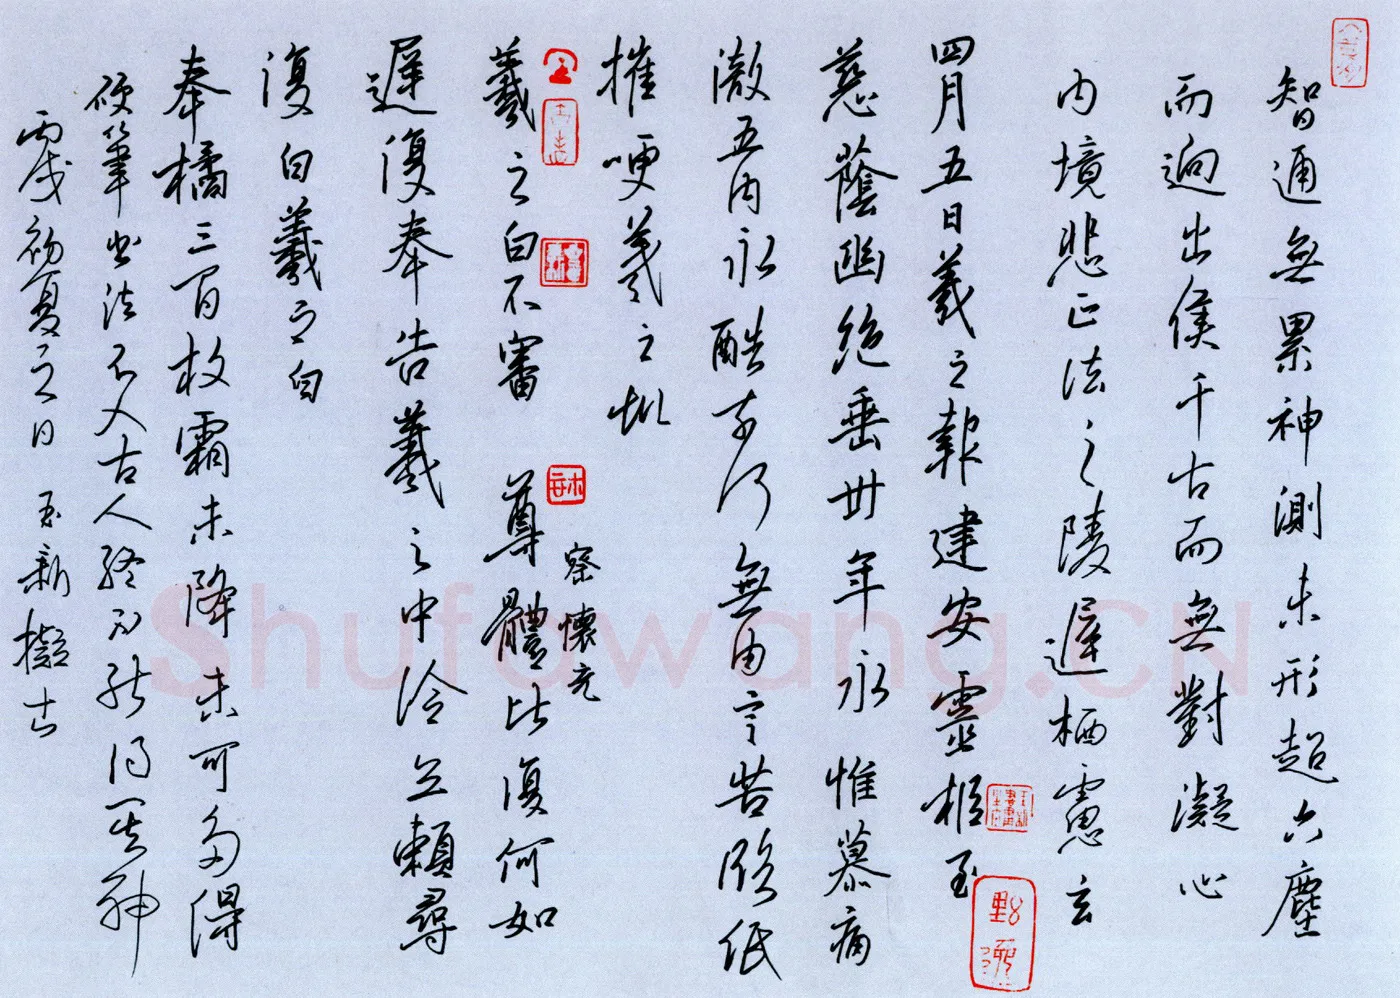 智通無累神測未形超六塵
而迥出隻千古而無對凝心
内境悲正法之陵遲栖慮玄
四月五日羲之報建安靈柩至
慈蔭幽絶垂卅年永惟慕痛
徹五内永酷奈何無由言苦臨紙
摧哽羲之
察懷充
羲之白不審尊體比復何如
遲復奉告羲之中冷無賴尋
復白羲之白
奉橘三百枚霜未降未可多得
硬筆書法不入古人終不能得其神
丙戌初夏之日玉新擬古
Shufawang.CN